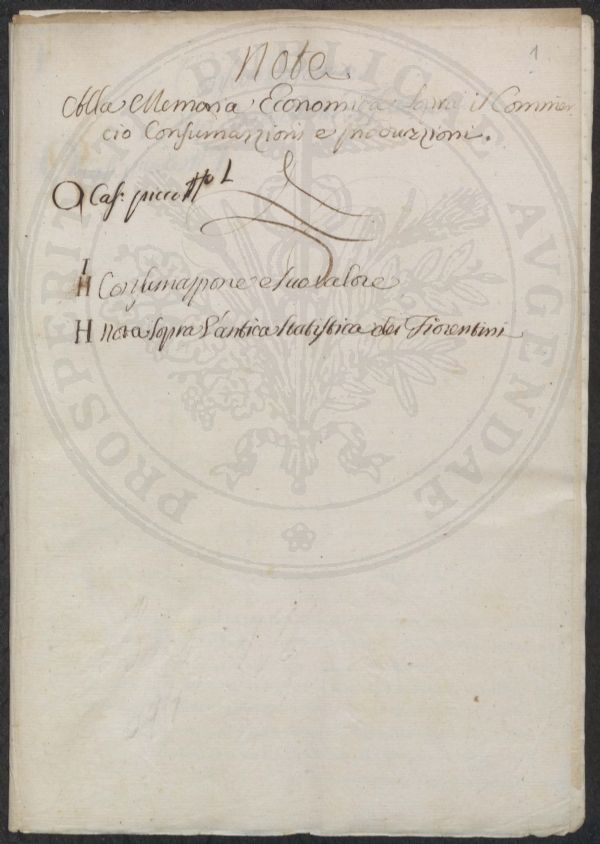 Note
1
Alla Memoria Economica sopra il Commer
cio Consumazzioni e produzzioni.
Cas:
I
H Consumazzone e suo valore
H nota sopra l'antica statistica dei Fiorentini
PROSPERITATI PUBLICAE AUGENDAE